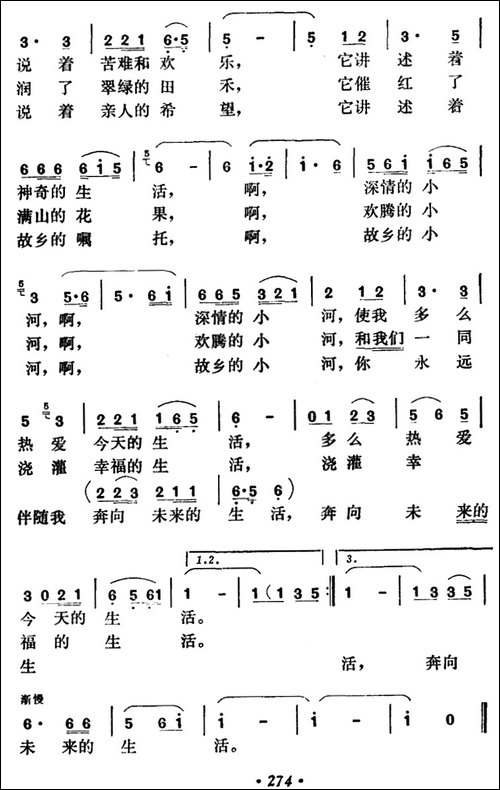 3· 3 | 221 6·5 | 5 - | 5 112 | 3· 5 |
说着 苦难和 欢 乐, 它讲 述着
润了 翠绿的 田 禾, 它催 红了
说着 亲人的 希 望, 它讲 述着
666 6i5 | 5 6 - | 6 i·2 | i· 6 | 561 i65 |
神奇的 生 活, 啊, 深情的 小
满山的 花 果, 啊, 欢腾的 小
故乡的 嘱 托, 啊, 故乡的 小
5 3 5·6 | 5· 6i | 665 321 | 2 12 | 3· 3 |
河, 啊, 深情的 小 河, 使我 多么
河, 啊, 欢腾的 小 河, 和我们 一同
河, 啊, 故乡的 小 河, 你 永远
5 5 3 | 221 165 | 6 - | 01 23 | 5 6 5 |
热爱 今天的 生 活, 多么 热爱
浇灌 幸福的 生 活, 浇灌 幸
(223 211 | 6·5 6)
伴随我 奔向 未来的 生 活, 奔向 未 来的
1.2. 3.
3021 | 6 561 | 1 - | 1(135 :‖ 1 - | 1335 |
今天的 生 活。
福的 生 活。
生 活, 奔向
渐慢
6· 66 | 5 6i | i - | i - | i 0 ‖
未 来的 生 活。
· 274 ·